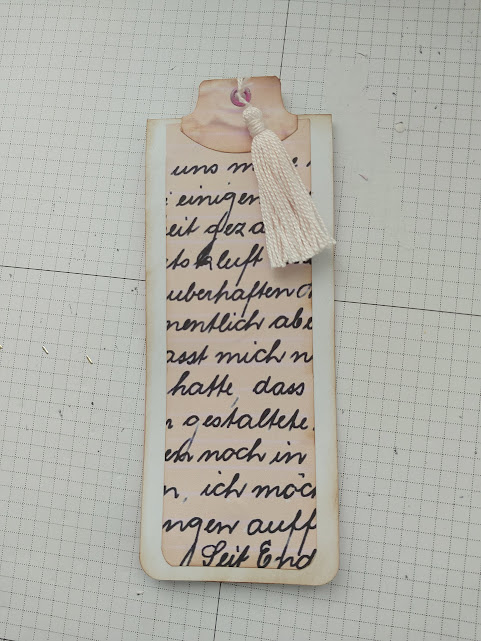 uns m
einigen
eit geza
luft
uberhaften
nentlich abe
asst mich n
hatte, dass
gestaltete
noch in
n, ich möc
ngen auff
Seit End